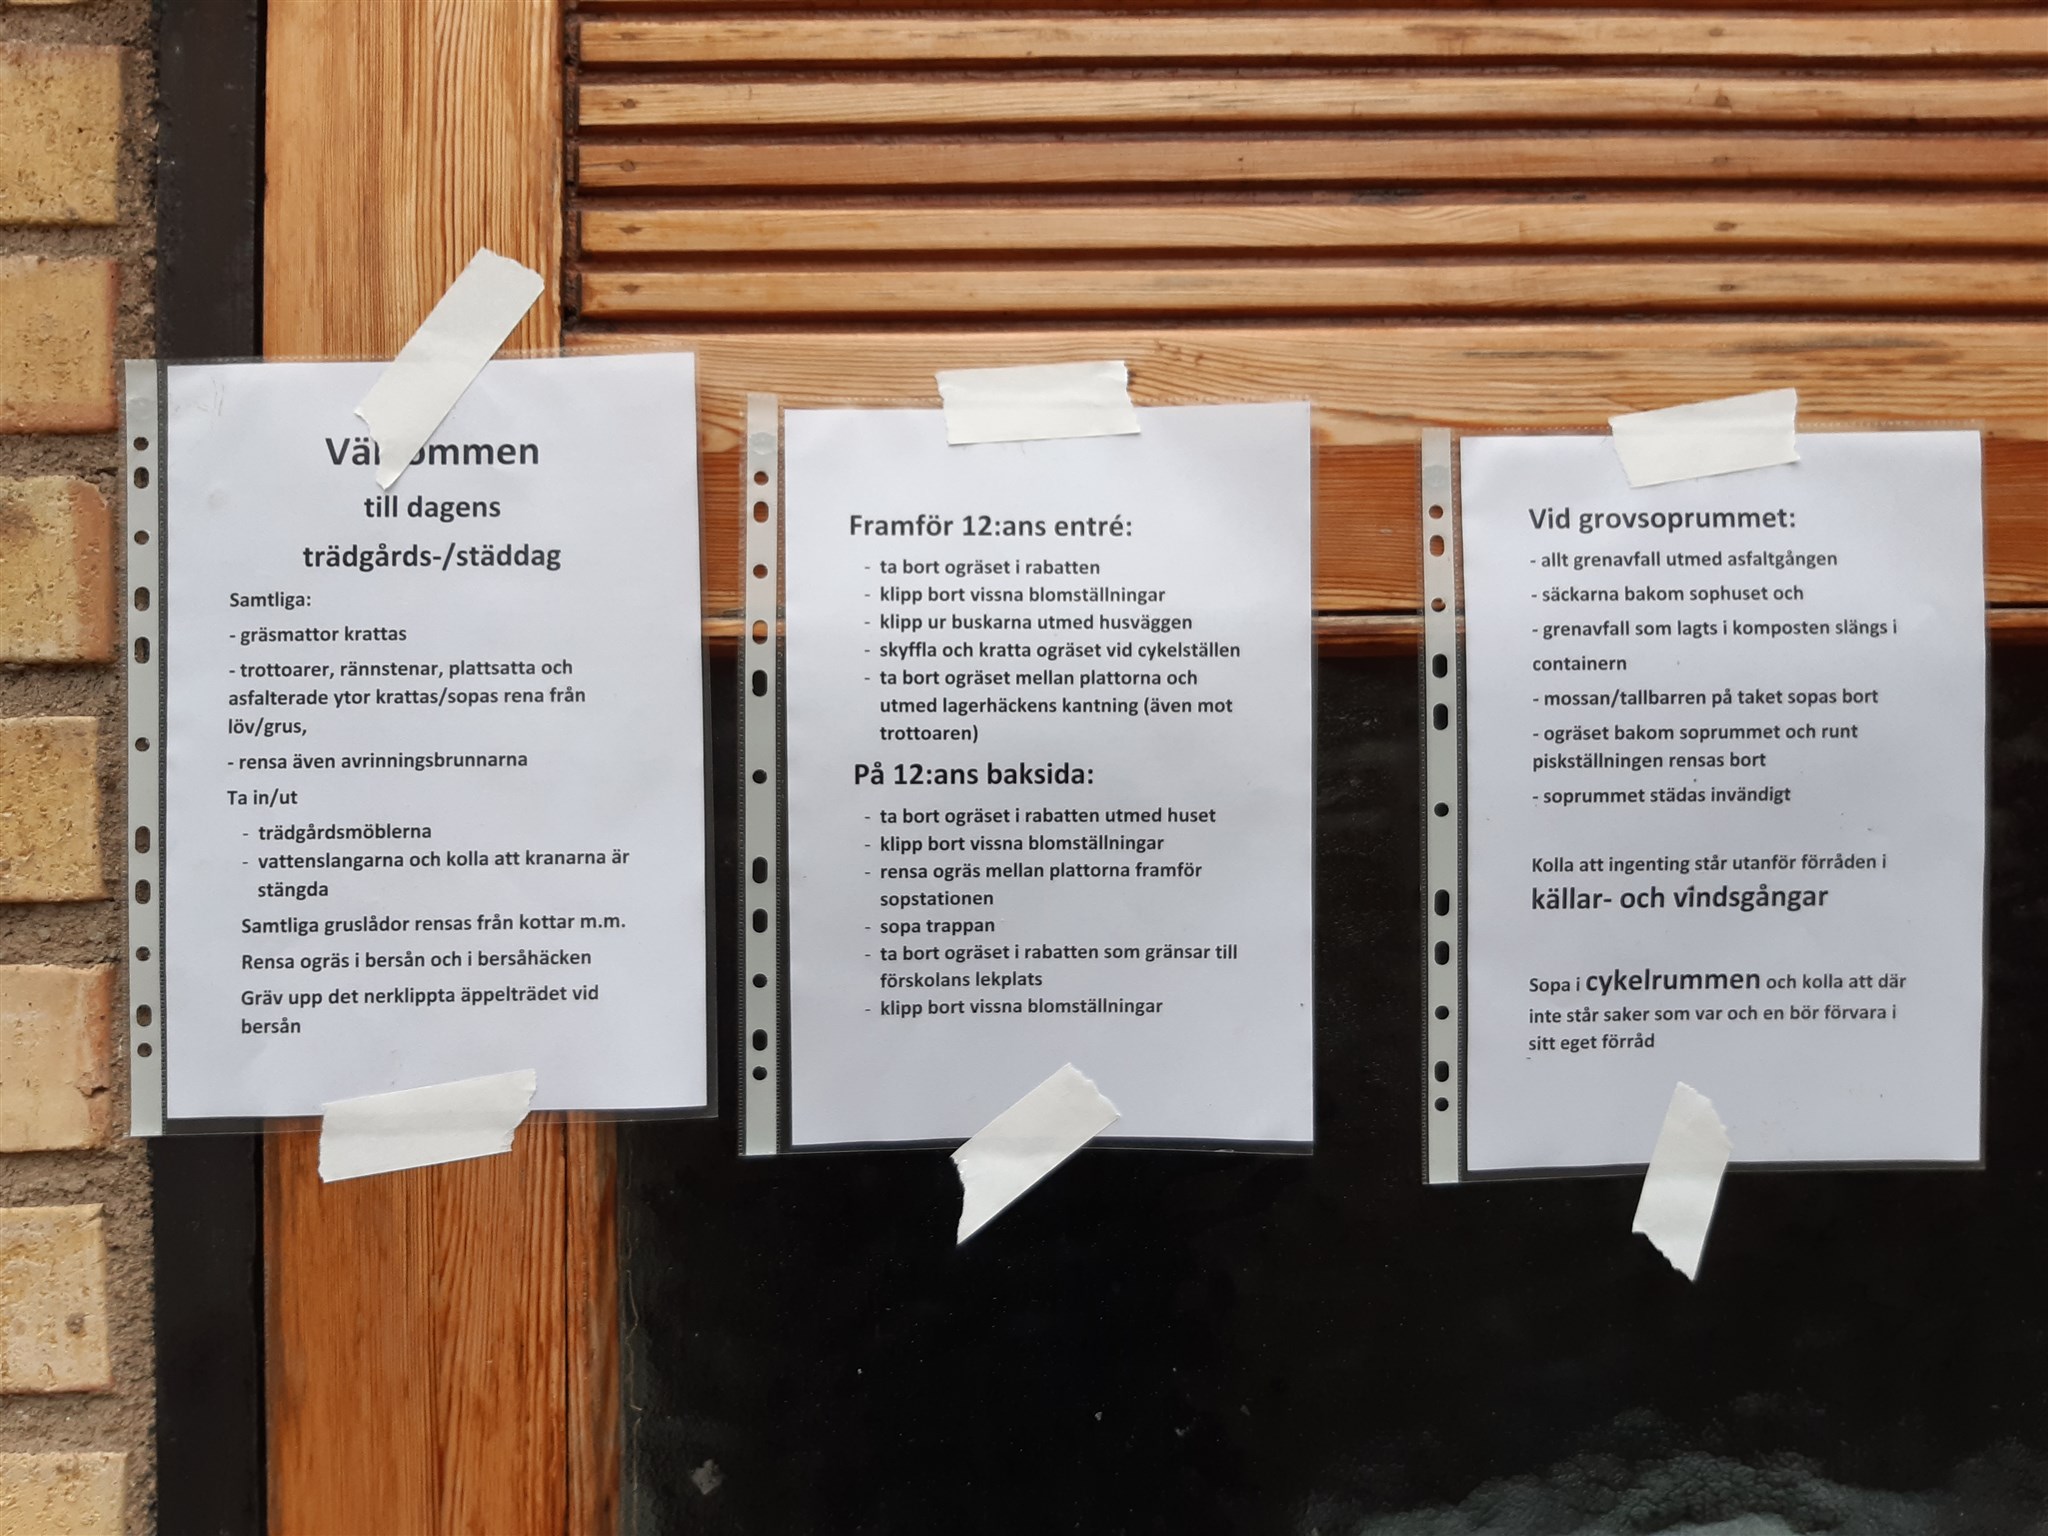 Välkommen
till dagens
trädgårds-/städdag
Samtliga:
- gräsmattor krattas
- trottoarer, rännstenar, plattsatta och
asfalterade ytor krattas/sopas rena från
löv/grus,
- rensa även avrinningsbrunnarna
Ta in/ut
- trädgårdsmöblerna
- vattenslangarna och kolla att kranarna är
stängda
Samtliga gruslådor rensas från kottar m.m.
Rensa ogräs i bersån och i bersåhäcken
Gräv upp det nerklippta äppelträdet vid
bersån
Framför 12:ans entré:
- ta bort ogräset i rabatten
- klipp bort vissna blomställningar
- klipp ur buskarna utmed husväggen
- skyffla och kratta ogräset vid cykelställen
- ta bort ogräset mellan plattorna och
utmed lagerhäckens kantning (även mot
trottoaren)
På 12:ans baksida:
- ta bort ogräset i rabatten utmed huset
- klipp bort vissna blomställningar
- rensa ogräs mellan plattorna framför
sopstationen
- sopa trappan
- ta bort ogräset i rabatten som gränsar till
förskolans lekplats
- klipp bort vissna blomställningar
Vid grovsoprummet:
- allt grenavfall utmed asfaltgången
- säckarna bakom sophuset och
- grenavfall som lagts i komposten slängs i
containern
- mossan/tallbarren på taket sopas bort
- ogräset bakom soprummet och runt
piskställningen rensas bort
- soprummet städas invändigt
Kolla att ingenting står utanför förråden i
källar- och vindsgångar
Sopa i cykelrummen och kolla att där
inte står saker som var och en bör förvara i
sitt eget förråd
-